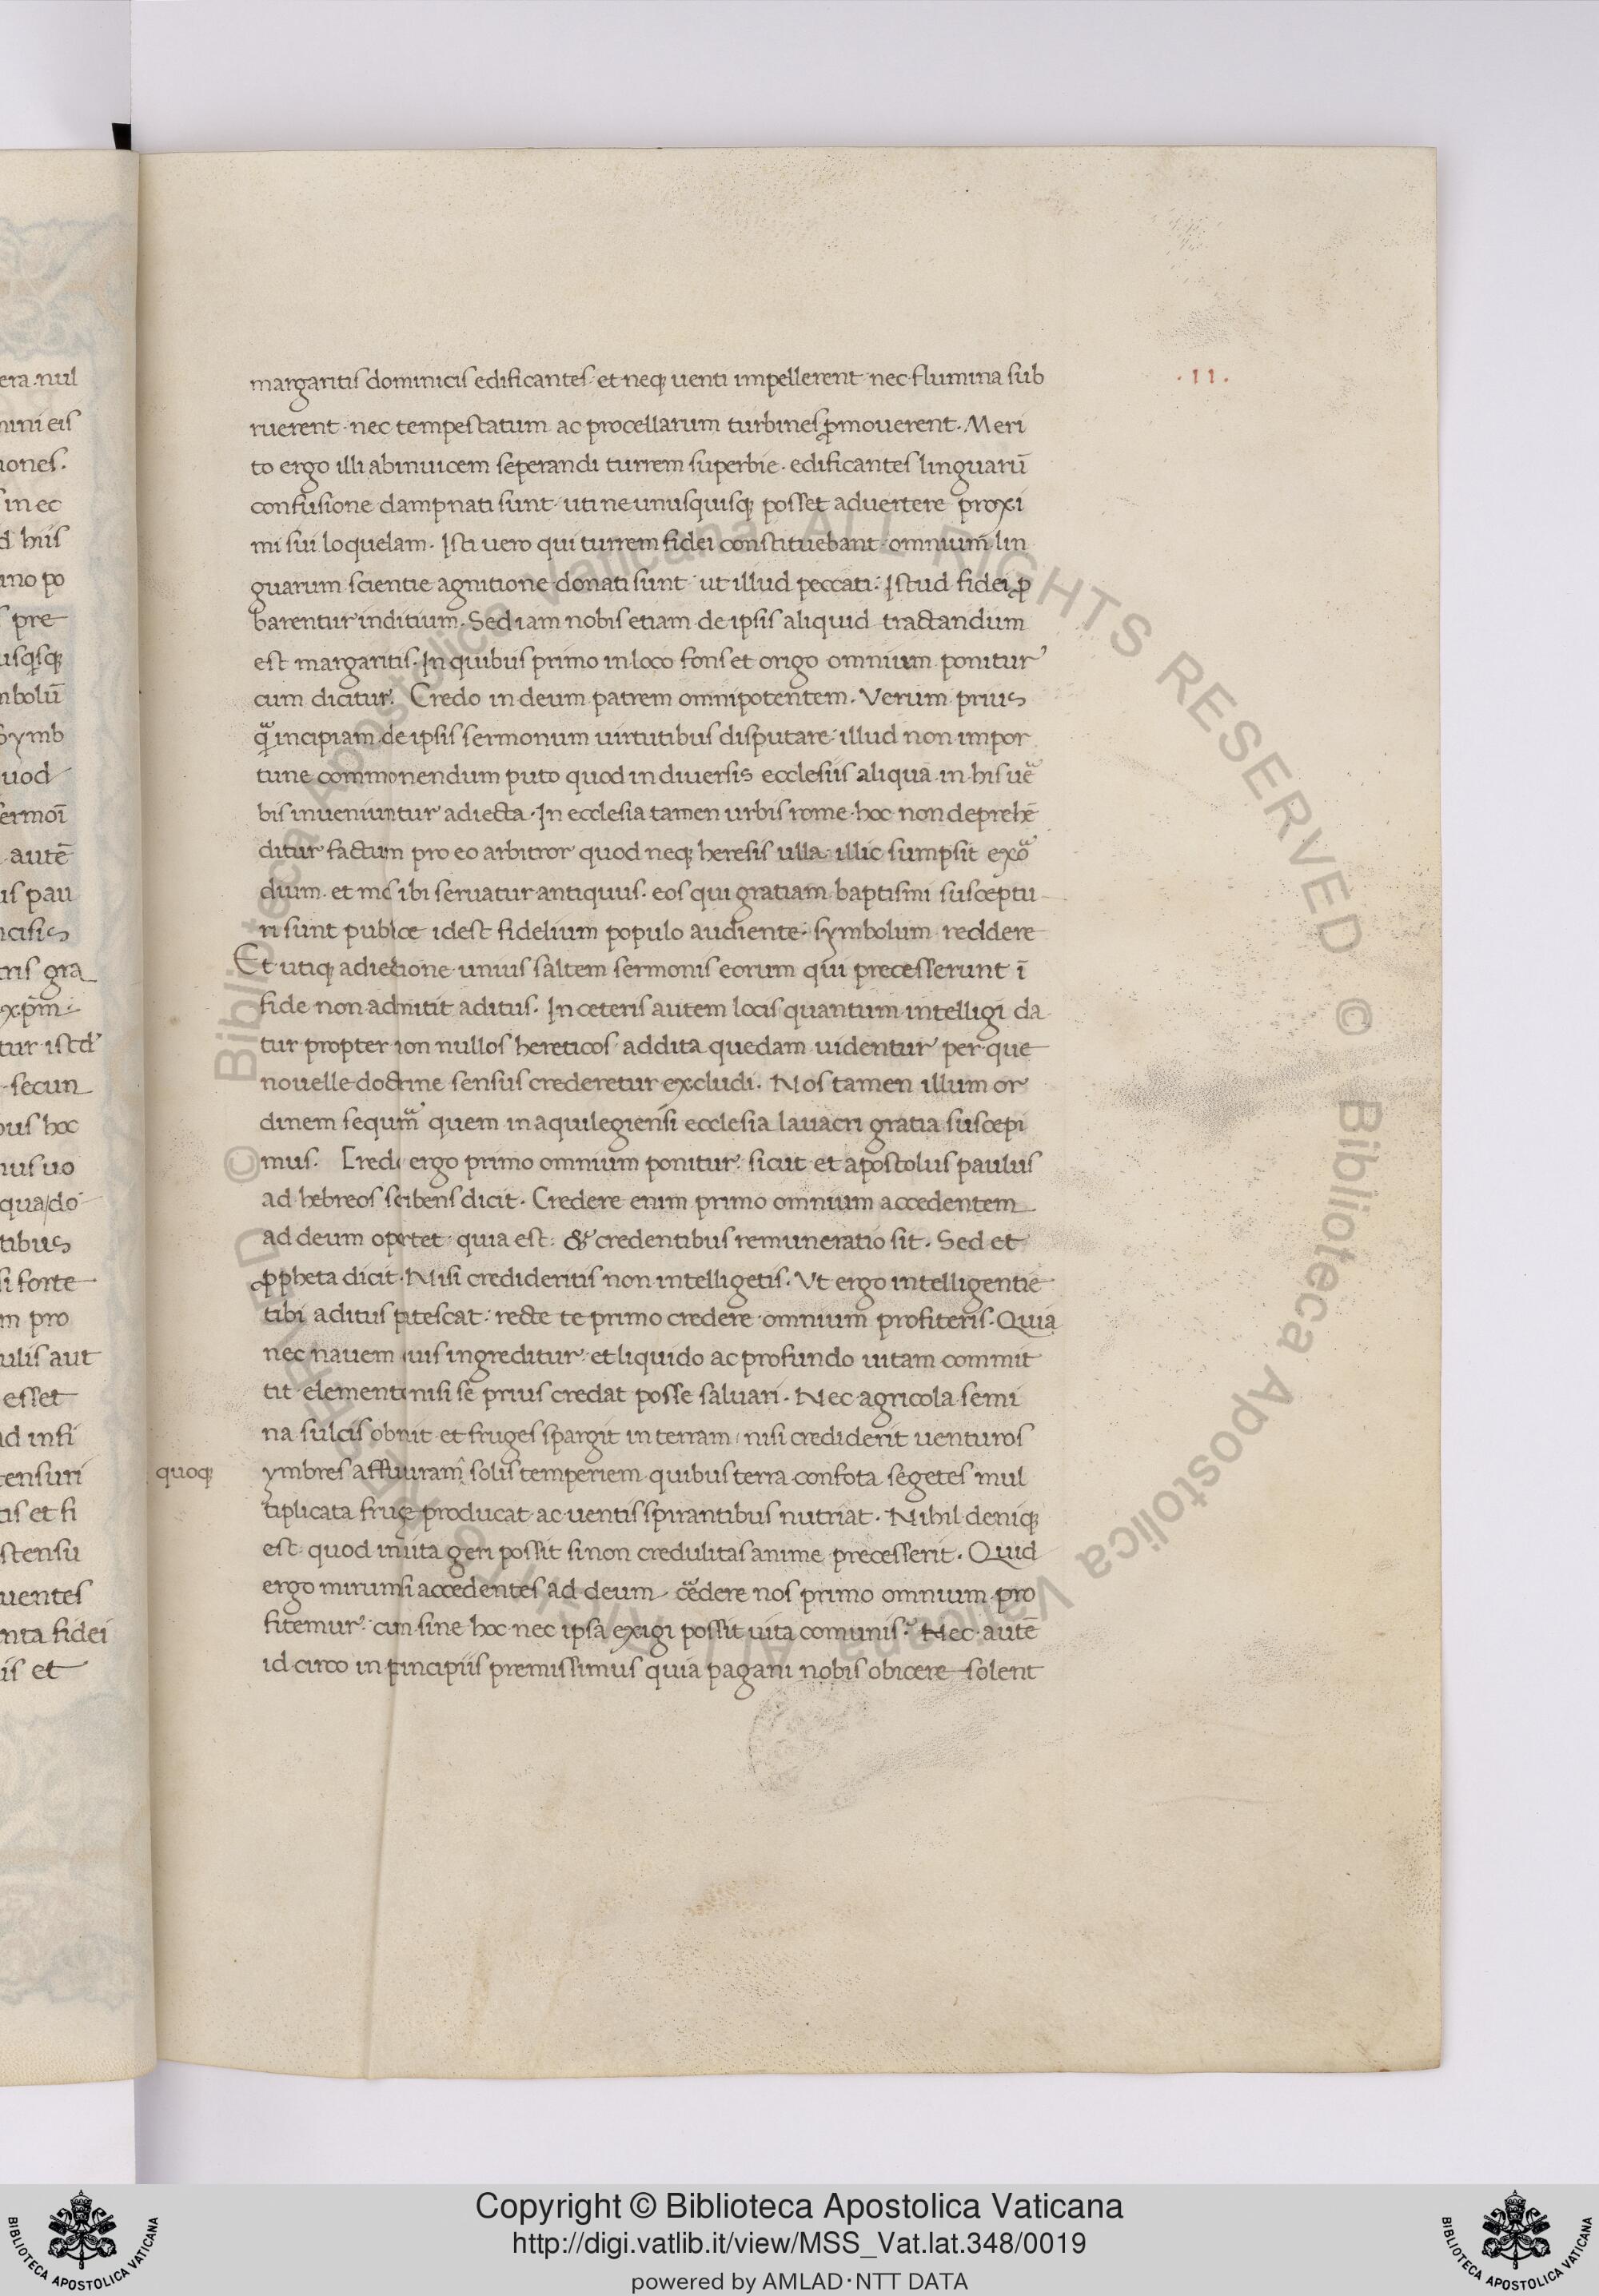 margaritis dominicis edificantes· et neq; uenti impellerent nec flumina sub
·11·
ruerent· nec tempestatum ac procellarum turbines ꝑmouerent. Meri
to ergo illi abinuicem seperandi turrem superbie· edificantes linguarū
confusione dampnati sunt· uti ne unusquisq; posset aduertere proxi
mi sui loquelam. Isti uero qui turrem fidei constituebant· omnium lin
guarum scientie agnitione donati sunt· ut illud peccati· Istud fidei ꝓ
barentur inditium. Sed iam nobis etiam de ipsis aliquid tractandum
est margaritis. In quibus primo in loco fons et origo omnium ponitur
cum dicitur. Credo in deum patrem omnipotentem. Verum prius
qᷓ incipiam de ipsis sermonum uirtutibus disputare· illud non impor
tune commonendum puto quod in diuersis ecclesiis aliqua in his uẽ
bis inueniuntur adiecta. In ecclesia tamen urbis rome hoc non deprehē
ditur factum pro eo arbitror quod neq; heresis ulla illic sumpsit exõ
dium. et mos ibi seruatur antiquus. eos qui gratiam baptismi susceptu
ri sunt publice idest fidelium populo audiente· symbolum reddere
Et utiq; adiectione unius saltem sermonis eorum qui precesserunt ī
fide non admitit aditus. In ceteris autem locis quantum intelligi da
tur propter non nullos hereticos addita quedam uidentur per que
nouelle doctrine sensus crederetur excludi. Nos tamen illum or
dinem sequimᷓ quem in aquilegiensi ecclesia lauacri gratia suscepi
mus. Credo ergo primo omnium ponitur. sicut et apostolus paulus
ad hebreos scribens dicit. Credere enim primo omnium accedentem
ad deum oportet· quia est. & credentibus remuneratio sit. Sed et
ꝓpheta dicit. Nisi credideritis non intelligetis. Vt ergo intelligentie
tibi aditus patescat· recte te primo credere omnium profiteris. Quia
nec nauem quis ingreditur· et liquido ac profundo uitam commit
tit elemento nisi se prius credat posse saluari. Nec agricola semi
na sulcis obruit et fruges spargit in terram, nisi crediderit uenturos
quoq;
ymbres affuturam solis temperiem quibus terra confota segetes mul
tiplicata fruge producat ac uentis spirantibus nutriat. Nihil deniq;
est quod in uita geri possit si non credulitas anime precesserit. Quid
ergo mirum si accedentes ad deum cẽdere nos primo omnium pro
fitemur. cum sine hoc nec ipsa exigi possit uita comunis. Nec autē
id circo in principiis premissimus quia pagani nobis obicere solent
Copyright © Biblioteca Apostolica Vaticana
http://digi.vatlib.it/view/MSS_Vat.lat.348/0019
powered by AMLAD·NTT DATA